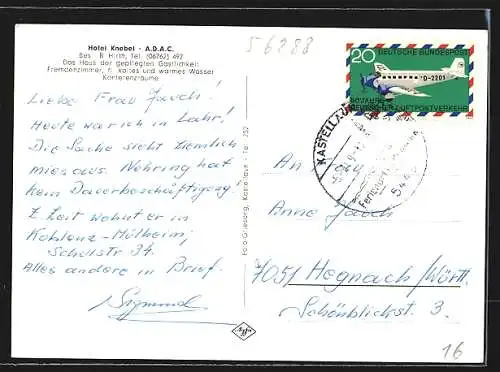 Hotel Knebel - A.D.A.C.
Bes. B. Hirth, Tel. (06762) 492
Das Haus der gepflegten Gastlichkeit
Fremdenzimmer, fl. kaltes und warmes Wasser
Konferenzräume
56288
20
DEUTSCHE BUNDESPOST
D-2201
50 JAHRE
DEUTSCHER LUFTPOSTVERKEHR
KASTELLAUN
5448
Liebe Frau Jauch!
Heute war ich in Lahr!
Die Sache sieht ziemlich
mies aus. Nehring hat
kein Dauerbeschäftigung!
z. Zeit wohnt er in
Koblenz-Mülheim,
Schulstr 34.
Alles andere in Brief.
Sigmund
Foto-Griessing, Kastellaun · Tel. 252
An
Anne Jauch
7051 Hegnach/Württ.
Schönblickstr. 3.
16